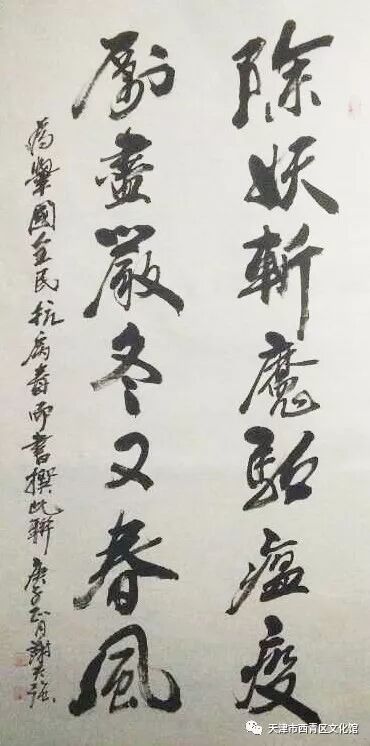 除妖斬魔驅瘟疫
盡嚴冬又春風
為舉國全民抗病毒而書撰此聯 庚子正月 謝
天津市西青区文化馆